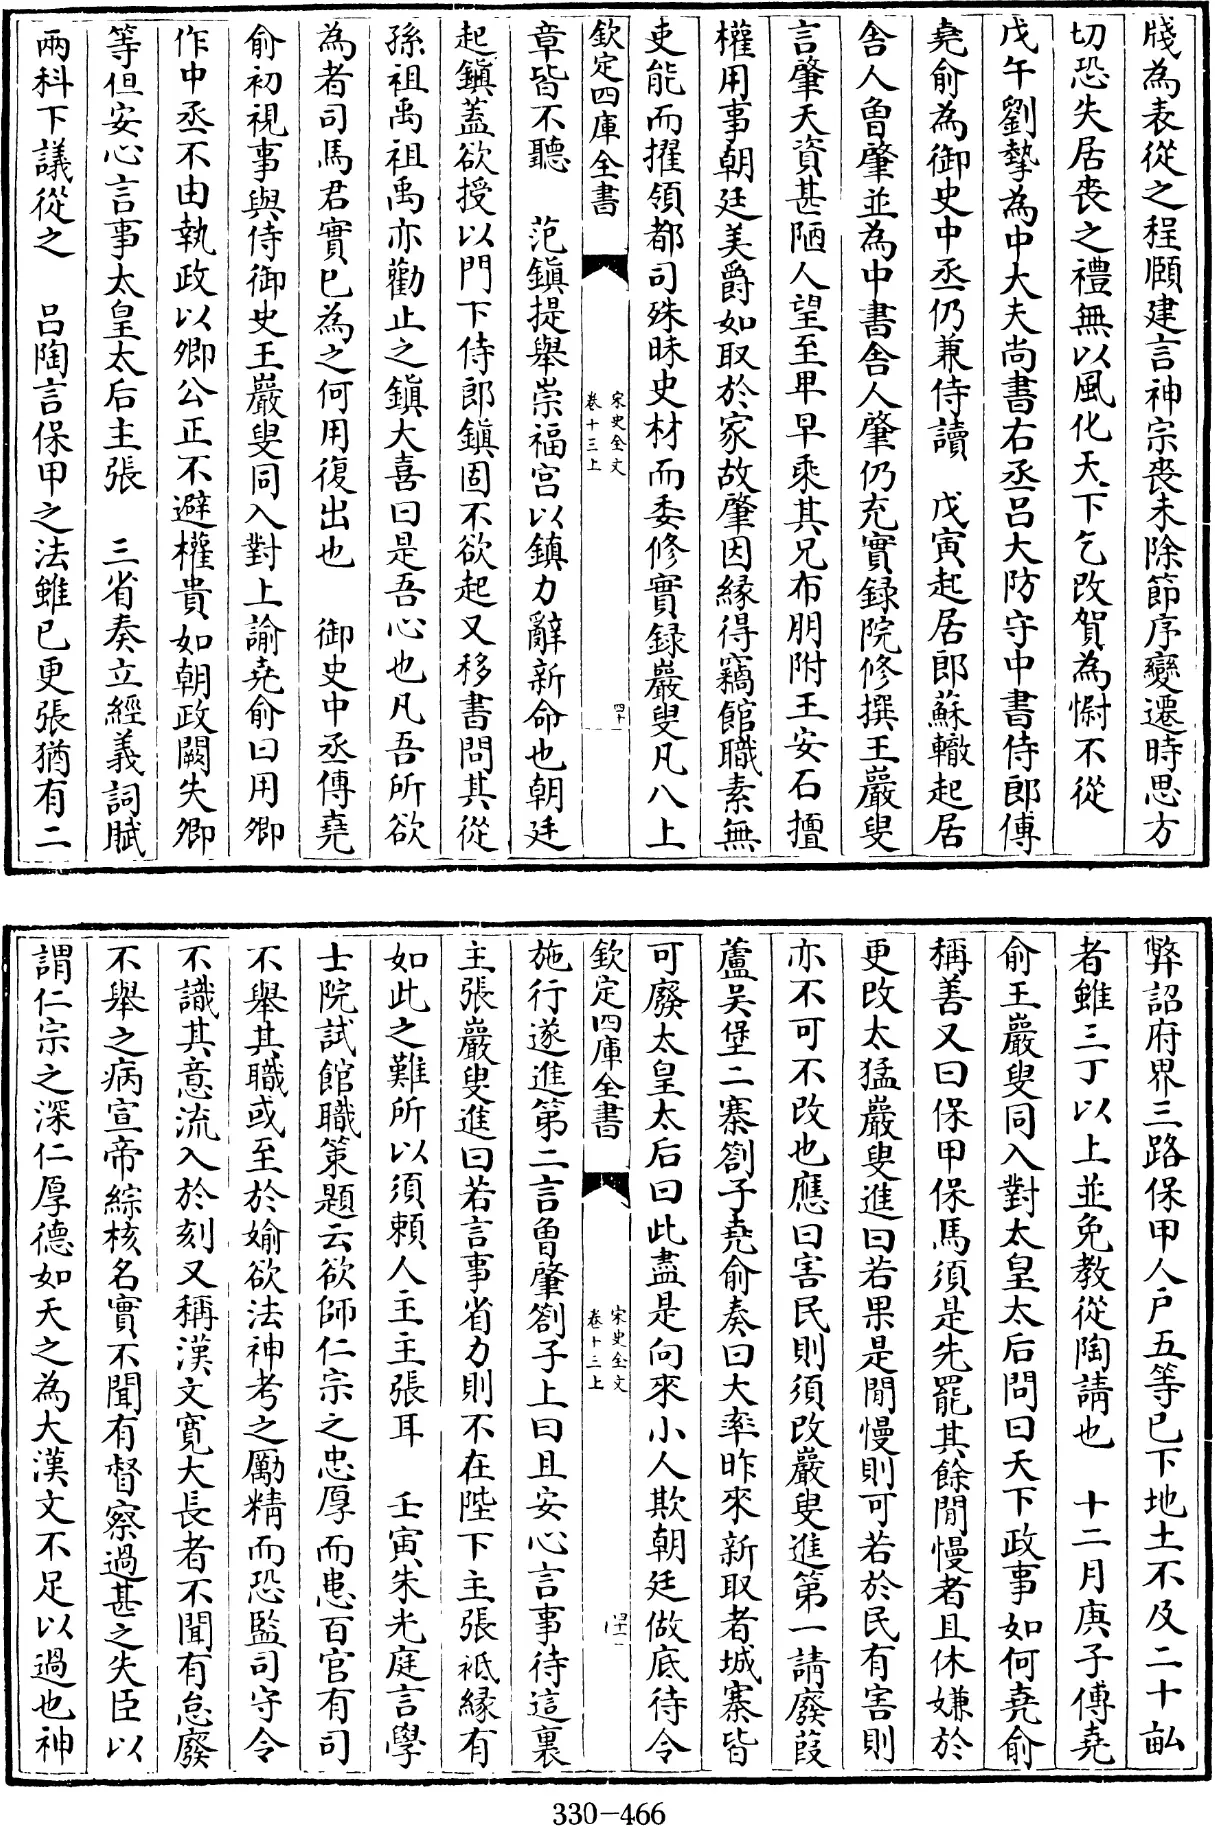 牋為表從之程頥建言神宗喪未除節序變遷時思方
切恐失居喪之禮無以風化天下乞改賀為慰不從
戊午劉摯為中大夫尚書右丞吕大防守中書侍郎傅
堯俞為御史中丞仍兼侍讀　戊寅起居郎蘇轍起居
舎人曽肇並為中書舎人肇仍充實録院修撰王巖叟
言肇天資甚陋人望至卑早乘其兄布朋附王安石擅
權用事朝廷美爵如取於家故肇因緣得竊館職素無
吏能而擢領都司殊昧史材而委修實録巖叟凡八上
欽定四庫全書
宋史全文
卷十三上
四十
章皆不聽　范鎮提舉崇福宫以鎮力辭新命也朝廷
起鎮蓋欲授以門下侍郎鎮固不欲起又移書問其從
孫祖禹祖禹亦勸止之鎮大喜曰是吾心也凡吾所欲
為者司馬君實已為之何用復出也　御史中丞傅堯
俞初視事與侍御史王巖叟同入對上諭堯俞曰用卿
作中丞不由執政以卿公正不避權貴如朝政闕失卿
等但安心言事太皇太后主張　三省奏立經義詞賦
兩科下議從之　吕陶言保甲之法雖已更張猶有二
弊詔府界三路保甲人户五等已下地土不及二十畝
者雖三丁以上並免教從陶請也　十二月庚子傅堯
俞王巖叟同入對太皇太后問曰天下政事如何堯俞
稱善又曰保甲保馬須是先罷其餘閒慢者且休嫌於
更改太猛巖叟進曰若果是閒慢則可若於民有害則
亦不可不改也應曰害民則須改巖叟進第一請廢葭
蘆吴堡二寨劄子堯俞奏曰大率昨來新取者城寨皆
可廢太皇太后曰此盡是向來小人欺朝廷做底待令
欽定四庫全書
宋史全文
卷十三上
四十一
施行遂進第二言曽肇劄子上曰且安心言事待這裏
主張巖叟進曰若言事省力則不在陛下主張祗緣有
如此之難所以須頼人主主張耳　壬寅朱光庭言學
士院試館職策題云欲師仁宗之忠厚而患百官有司
不舉其職或至於媮欲法神考之勵精而恐監司守令
不識其意流入於刻又稱漢文寛大長者不聞有怠廢
不舉之病宣帝綜核名實不聞有督察過甚之失臣以
謂仁宗之深仁厚德如天之為大漢文不足以過也神
330-466